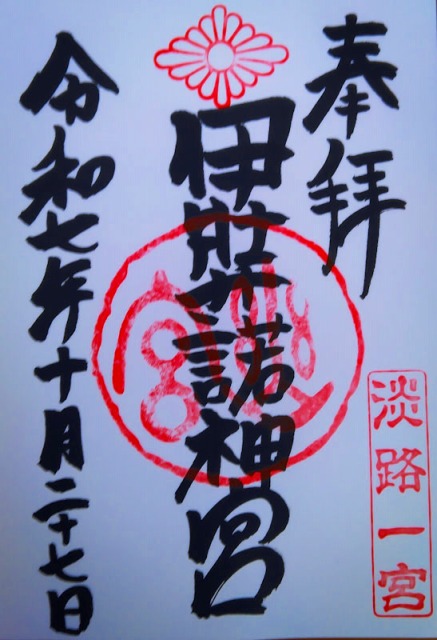 奉拝
淡路一宮
伊弉諾神宮
令和七年十月二十七日